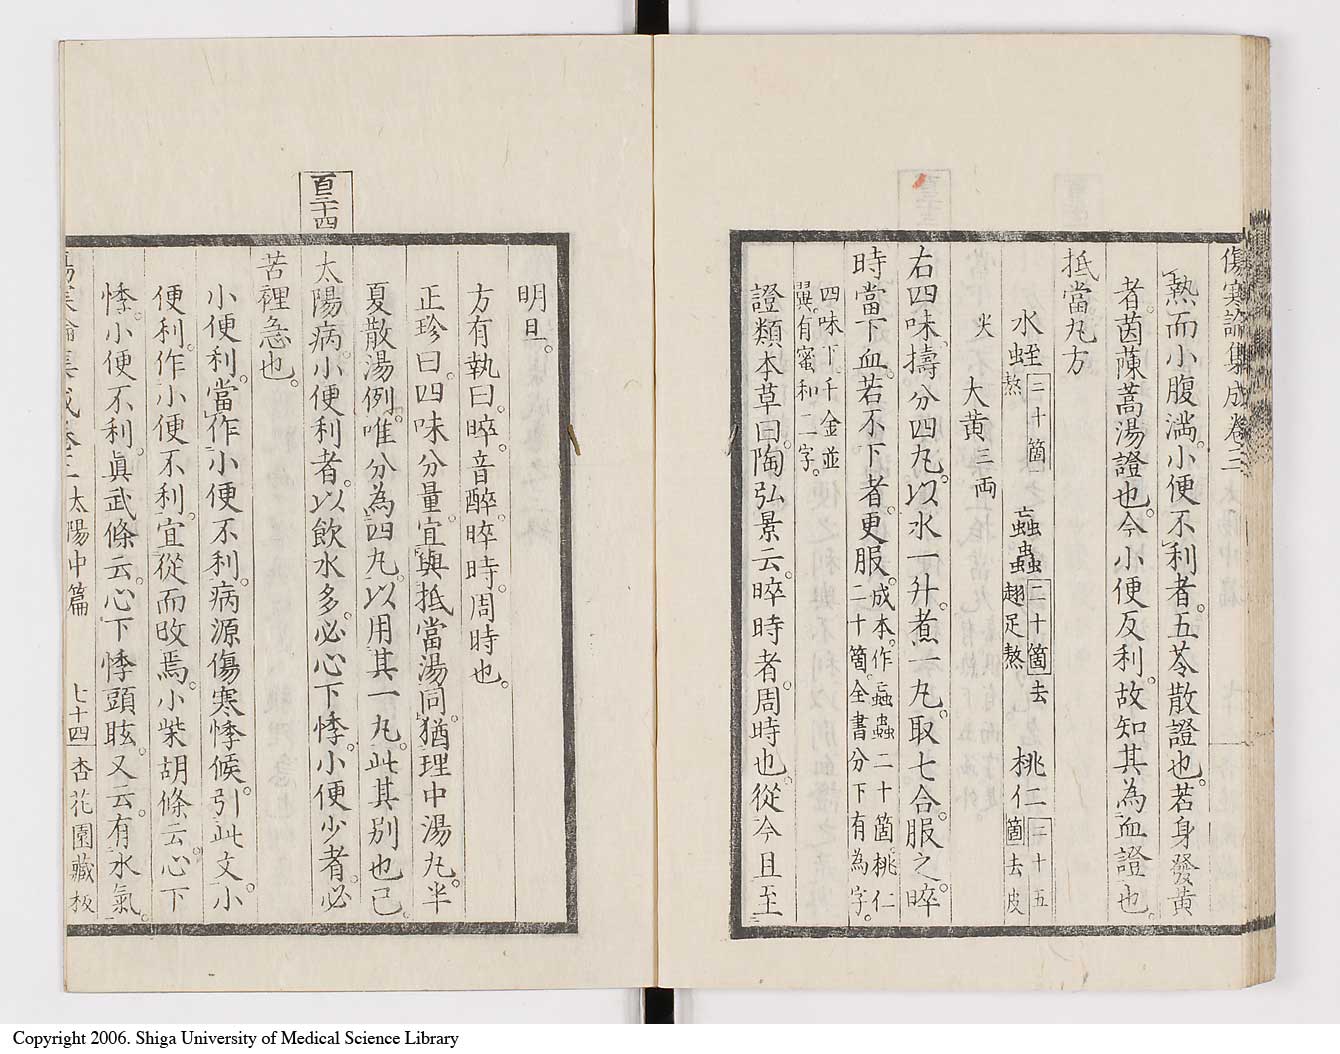 傷寒論集成卷三
熱而小腹滿。小便不利者。五苓散證也。若身發黃
者。茵蔯蒿湯證也。今小便反利。故知其為血證也。
抵當丸方
水蛭二十箇熬 蝱蟲二十箇去翅足熬 桃仁二十五箇去皮
尖 大黃三両
右四味。擣分四丸。以水一升。煮一丸。取七合。服之。晬
時當下血。若不下者。更服。成本。作蝱蟲二十箇。桃仁
二十箇。全書分下有為字。
四味下。千金並
翼。有蜜和二字。
證類本草曰。陶弘景云。晬時者。周時也。從今旦至
明旦。
方有執曰。晬。音醉。晬時。周時也。
正珍曰。四味分量。宜與抵當湯同。猶理中湯丸。半
夏散湯例。唯分為四丸。以用其一丸。此其別也已。
百三十四
太陽病。小便利者。以飲水多。必心下悸。小便少者。必
苦裡急也。
小便利。當作小便不利。病源傷寒悸候。引此文。小
便利。作小便不利。宜從而改焉。小柴胡條云。心下
悸。小便不利。眞武條云。心下悸頭眩。又云。有水氣。
傷寒論集成卷三 太陽中篇 七十四 杏花園藏板
Copyright 2006. Shiga University of Medical Science Library